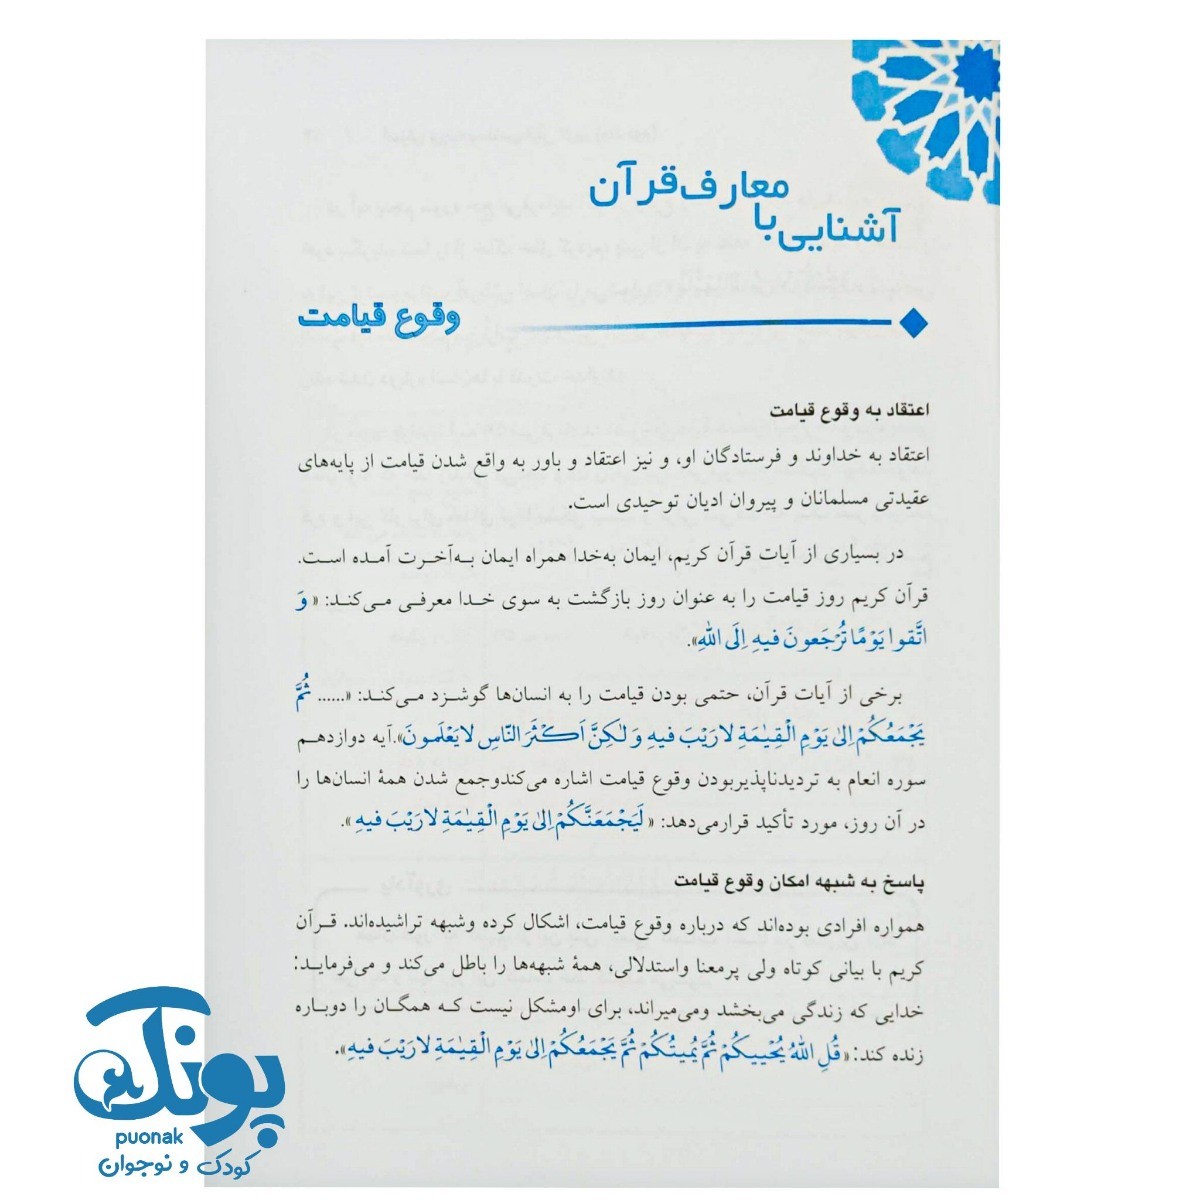 آشنایی با معارف قرآن
وقوع قیامت
اعتقاد به وقوع قیامت
اعتقاد به خداوند و فرستادگان او، و نیز اعتقاد و باور به واقع شدن قیامت از پایه‌های
عقیدتی مسلمانان و پیروان ادیان توحیدی است.
در بسیاری از آیات قرآن کریم، ایمان به‌خدا همراه ایمان به‌آخرت آمده است.
قرآن کریم روز قیامت را به عنوان روز بازگشت به سوی خدا معرفی می‌کند: «وَ
اتَّقوا یَوْمًا تُرْجَعونَ فیهِ اِلَی اللهِ».
برخی از آیات قرآن، حتمی بودن قیامت را به انسان‌ها گوشزد می‌کند: «...... ثُمَّ
یَجْمَعُکُمْ اِلیٰ یَوْمِ الْقِیٰمَةِ لا رَیْبَ فیهِ وَ لٰکِنَّ اَکْثَرَ النّاسِ لا یَعْلَمونَ».آیه دوازدهم
سوره انعام به تردیدناپذیربودن وقوع قیامت اشاره می‌کندوجمع شدن همهٔ انسان‌ها را
در آن روز، مورد تأکید قرارمی‌دهد: « لَیَجْمَعَنَّکُمْ اِلیٰ یَوْمِ الْقِیٰمَةِ لا رَیْبَ فیهِ ».
پاسخ به شبهه امکان وقوع قیامت
همواره افرادی بوده‌اند که درباره وقوع قیامت، اشکال کرده وشبهه تراشیده‌اند. قرآن
کریم با بیانی کوتاه ولی پرمعنا واستدلالی، همهٔ شبهه‌ها را باطل می‌کند و می‌فرماید:
خدایی که زندگی می‌بخشد ومی‌میراند، برای اومشکل نیست که همگان را دوباره
زنده کند: «قُلِ اللهُ یُحْییکُمْ ثُمَّ یُمیتُکُمْ ثُمَّ یَجْمَعُکُمْ اِلیٰ یَوْمِ الْقِیٰمَةِ لا رَیْبَ فیهِ».
پونک
puonak
کودک و نوجوان